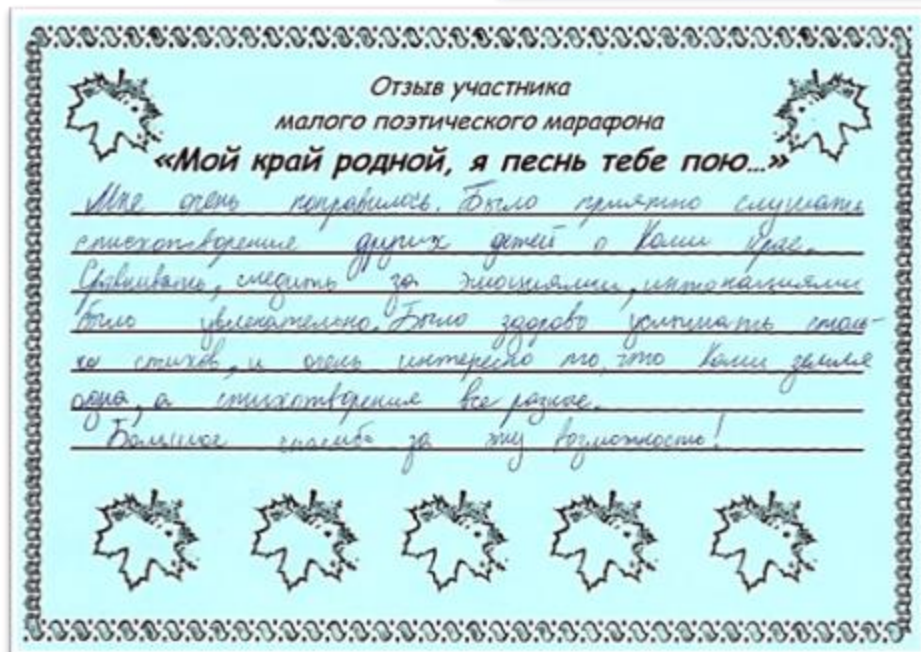 Отзыв участника
малого поэтического марафона
«Мой край родной, я песнь тебе пою...»
Мне очень понравилось. Было приятно слушать
стихотворения других детей о Коми крае.
Сравнивать, следить за эмоциями, интонациями
было увлекательно. Было здорово услышать столь-
ко стихов, и очень интересно то, что Коми земля
одна, а стихотворения все разные.
Большое спасибо за эту возможность!